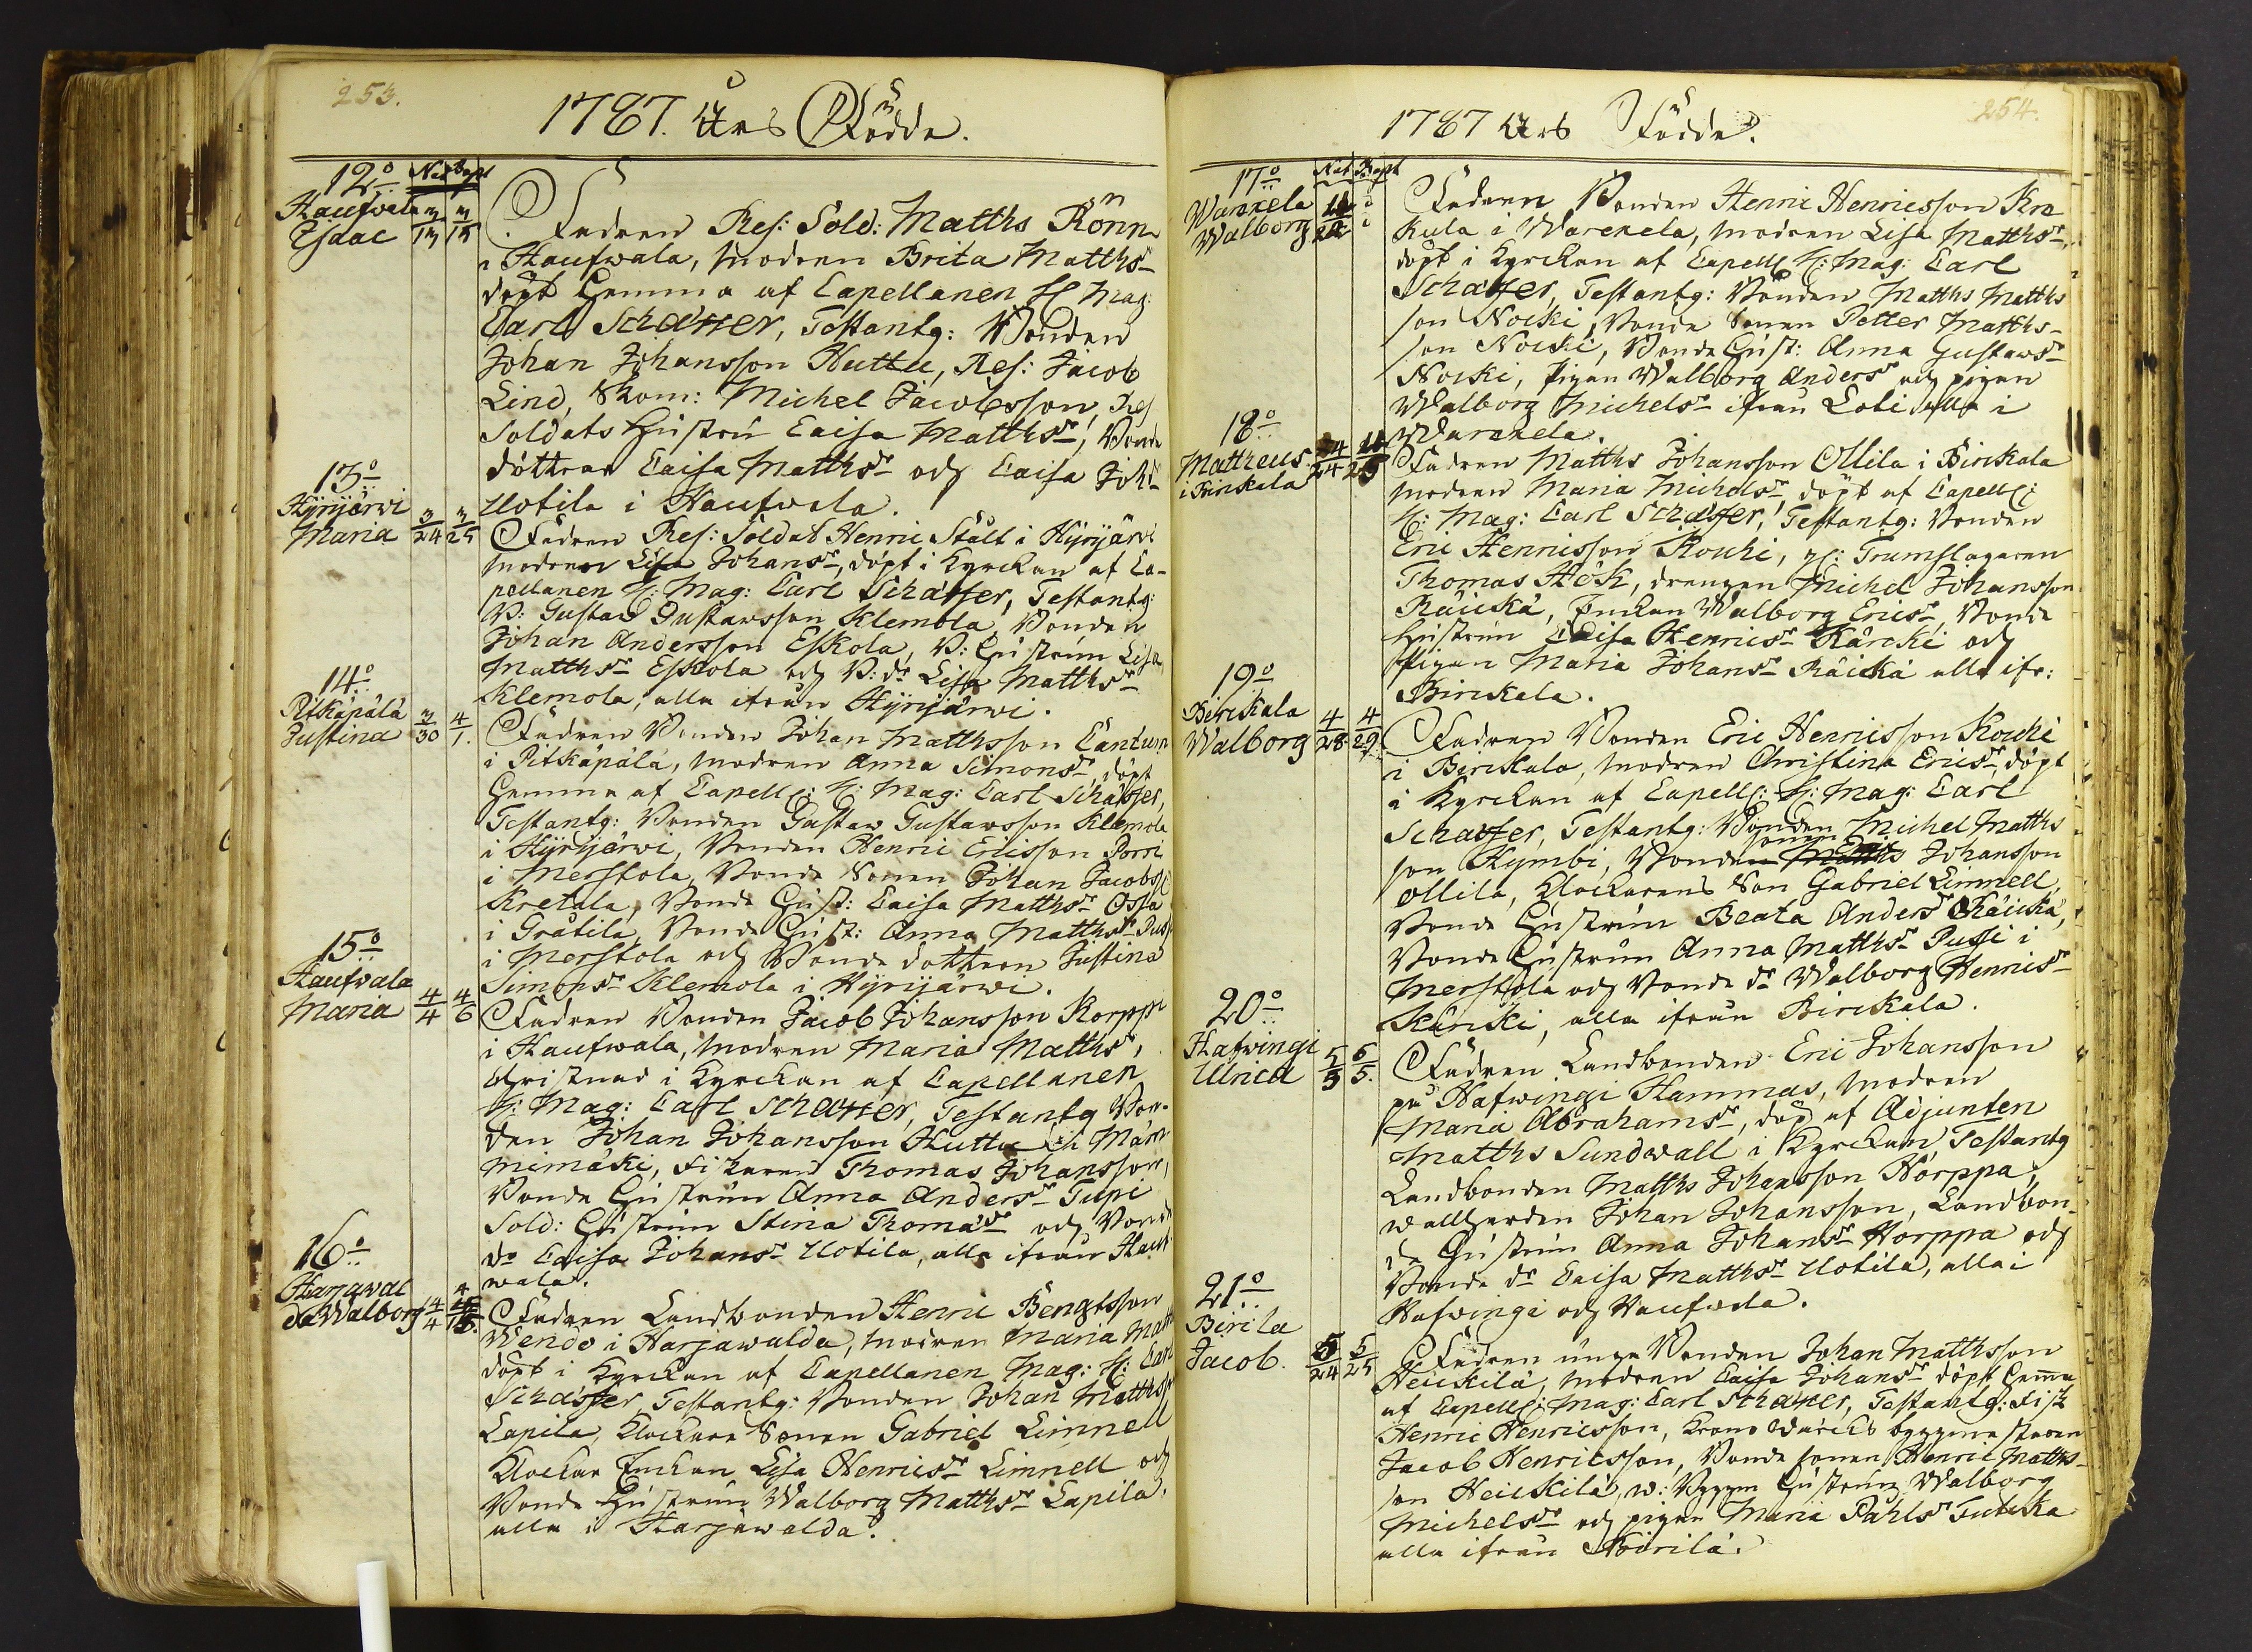 253.
1787. Års Födde.
12o Nat Bapt
Haufwala 3 3
Isaac 13 15
Fadren Res: Sold: Matths Rönn
i Haufwala, Modren Brita Matthsdr
döpt hemma af Capellanen H Mag:
Carl Schæffer, Testantg: Bonden
Johan Johansson Huttu, Res: Jacob
Lind, Skom: Michel Jacobsson, Res
Soldats Hustru Caisa Matthsdr, Bonde
dottran Caisa Matthsdr och Caisa Johdr
Uotila i Haufwala.
13o
Hyrijärwi 3 3
Maria 24 25
Fadren Res: Soldat Henric Stålt i Hyrijärwi
modren Lisa Johansdr, döpt i Kyrckan af Ca-
pellanen H: Mag: Carl Schæffer, Testantg:
B: Gustaf Gustafsson Klemola, Bonden
Johan Andersson Eskola, B: Hustrun Lisa
Matthsdr Eskola och B: dr Lisa Matthsdr
Klemola, alla ifrån Hyrijärwi.
14o
Pitkäpälä 3 4
Justina 30 1.
Fadren Bonden Johan Matthsson
i Pitkäpälä, modren Anna Simonsdr, döpt
hemma af Capell: H: Mag: Carl Schæffer,
Testantg: Bonden Gustaw Gustawsson Klemola
i Hyrijärwi, Bonden Henric Ericsson Porri
i Merstola, Bonde Sonen Johan Jacobss
Kretala, Bonde Hust: Caisa Matthsdr Ossa
i Gråtila, Bonde Hust: Anna Matthsdr Puss
i Merstola och Bonde dottren Justina
Simonsdr Klemola i Hyrijärwi.
15o
Haufwala 4 4
Maria 4 6
Fadren Bonden Jacob Johansson Korppi
i Haufwala, modren Maria Matthsdr,
Christnad i Kyrckan af Capellanen
H: Mag: Carl Schæffer, Testantg Bon-
den Johan Johansson Huttu i Mäm
mimäki, Fiskaren Thomas Johansson,
Bonde Hustrun Anna Andersdr Tupi
Sold: Hustrun Stina Thomædr och Bonde
dr Caisa Johansdr Uotila, alla ifrån Hauf
wala.
16o
Harjawal 4 4
da Walborg 14 15.
Fadren Landbonden Henric Bengtsson
Wendo i Harjawalda, modren Maria Matth
döpt i Kyrckan af Capellanen Mag: H: Carl
Schæffer, Testantg: Bonden Johan Matthss
Lapila, Klockare Sonen Gabriel Limnell
Klockar Enckan Lisa Henricsdr Limnell och
Bonde Hustrun Walborg Matthsdr Lapila.
alla i Harjawalda.
254.
1787 Års Födde.
17o Nat Bapt
Warekela
Walborg
Fadren Bonden Henric Henricsson Kre
kula i Warekela, modren Lisa Matthsdr,
döpt i Kyrckan af Capell H: Mag: Carl
Schæffer, Testantg: Bonden Matths Matths
son Nocki, Bonde Sonen Petter Matths-
son Nocki, Bonde Hust: Anna Gustawsdr
Nocki, pigan Walborg Andersdr och pigan
Walborg Michelsdr ifrån i
Warekela.
18o
Mattheus 4
i Birikala 24 25
Fadren Matths Johansson Ollila i Birikala
modren Maria Michelsdr döpt af Capell:
H: Mag: Carl Schæffer, Testantg: Bonden
Eric Henricsson Kouki, Trumslagaren
Thomas Höök, drengen Michel Johansson
Räickä, Enckan Walborg Ericsdr, Bonde
Hustrun Caisa Henricsdr Kärcki och
Pigan Maria Johansdr Räickä alla ifr:
Birikala.
19o
Birikala 4 4
Walborg 28 29
Fadren Bonden Eric Henricsson Kouki
i Birikala, modren Christina Ericsdr, döpt
i Kyrckan af Capell: H: Mag: Carl
Schæffer, Testantg: Bonden Michel Matths
son Kymbi, Bonden sonen Matths Johansson
Ollila, Klockarens Son Gabriel Limnell,
Bonde Hustrun Beata Andersdr Räickä,
Bonde Hustrun Anna Matthsdr Pussi i
Merstola och Bonde dr Walborg Henricsdr
Kärcki, alla ifrån Birikala.
20o
Hafwingi 5 5
Ulrica 3 5.
Fadren Landbonden Eric Johansson
på Hafwingi Hammas, modren
Maria Abrahamsdr, döp af Adjuncten
Matths Sundwall i Kyrckan Testantg
Landbonden Matths Johansson Horppa,
wallherden Johan Johansson, Landbon-
de Hustrun Anna Johansdr Horppa och
Bonde dr Caisa Matthsdr Uotila, alla i
Hafwingi och Haufwala.
21o
Birila 5 5
Jacob. 24 25
Fadren unge Bonden Johan Matthsson
Heickilä, modren Caisa Johansdr döpt hemma
af Capell: Mag: Carl Schæffer, Testantg: Fisk
Henric Henricsson, Krono Wärcks byggmästaren
Jacob Henricsson, Bonde sonen Henric Matths-
son Heickilä, w: Byggm Hustrun Walborg
Michelsdr och pigan Maria Påhlsdr Tuticka
alla ifrån Birilä.